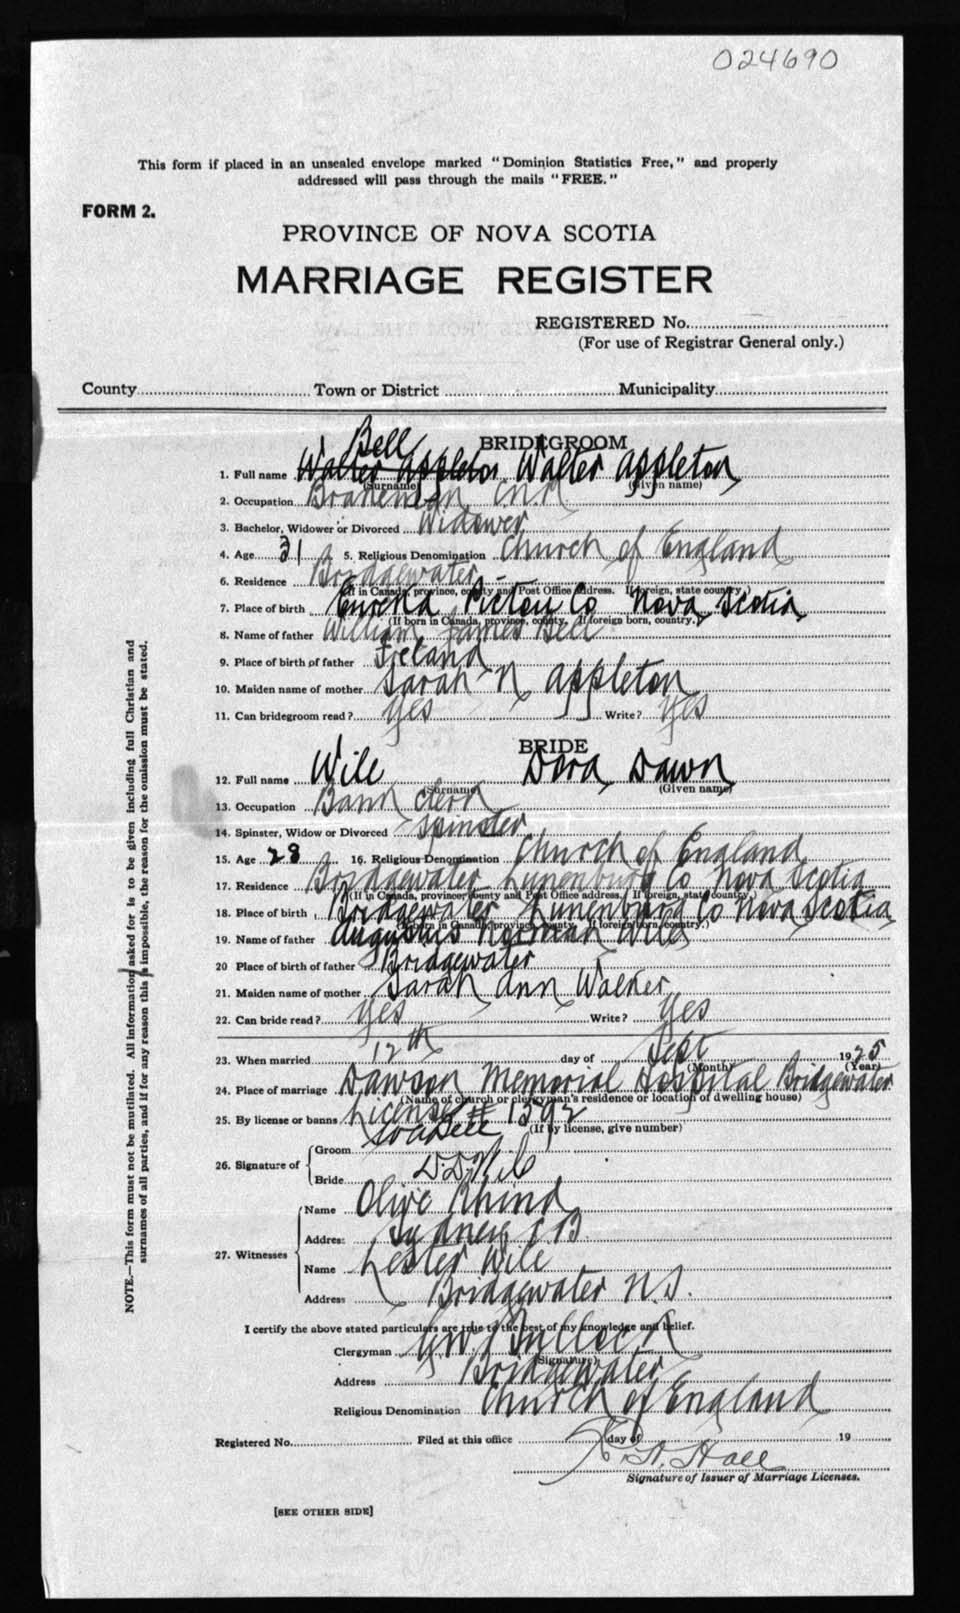 024690
This form if placed in an unsealed envelope marked "Dominion Statistics Free," and properly
addressed will pass through the mails "FREE."
FORM 2.
PROVINCE OF NOVA SCOTIA
MARRIAGE REGISTER
REGISTERED No.
(For use of Registrar General only.)
County Town or District Municipality
BRIDEGROOM
Bell
1. Full name Walter Appleton Walter Appleton
(Surname) (Given name)
2. Occupation Brakeman
3. Bachelor, Widower or Divorced Widower
4. Age 31 5. Religious Denomination Church of England
6. Residence Bridgewater
(If in Canada, province, county and Post Office address. If foreign, state country.)
7. Place of birth Eureka Pictou Co Nova Scotia
(If born in Canada, province, county. If foreign born, country.)
8. Name of father William James Bell
9. Place of birth of father Ireland
10. Maiden name of mother Sarah N Appleton
11. Can bridegroom read? Yes Write? Yes
BRIDE
12. Full name Wile Dora Dawn
(Surname) (Given name)
13. Occupation Bank clerk
14. Spinster, Widow or Divorced Spinster
15. Age 28 16. Religious Denomination Church of England
17. Residence Bridgewater Lunenburg Co Nova Scotia
(If in Canada, province, county and Post Office address. If foreign, state country.)
18. Place of birth Bridgewater Lunenburg Co Nova Scotia
(If born in Canada, province, county. If foreign born, country.)
19. Name of father Augustus Norman Wile
20 Place of birth of father Bridgewater
21. Maiden name of mother Sarah Ann Walker
22. Can bride read? Yes Write? Yes
23. When married 12th day of Sept 1925
(Month) (Year)
24. Place of marriage Dawson Memorial Hospital Bridgewater
(Name of church or clergyman's residence or location of dwelling house)
25. By license or banns License # 1592
(If by license, give number)
26. Signature of Groom W A Bell
Bride D. D. Wile
27. Witnesses Name Olive Rhind
Address Sydney C B.
Name Lester Wile
Address Bridgewater N.S.
I certify the above stated particulars are true to the best of my knowledge and belief.
Clergyman
(Signature)
Address Bridgewater
Religious Denomination Church of England
Registered No. Filed at this office day of 19
Hall
Signature of Issuer of Marriage Licenses.
[SEE OTHER SIDE]
NOTE.—This form must not be mutilated. All information asked for is to be given including full Christian and
surnames of all parties, and if for any reason this is impossible, the reason for the omission must be stated.